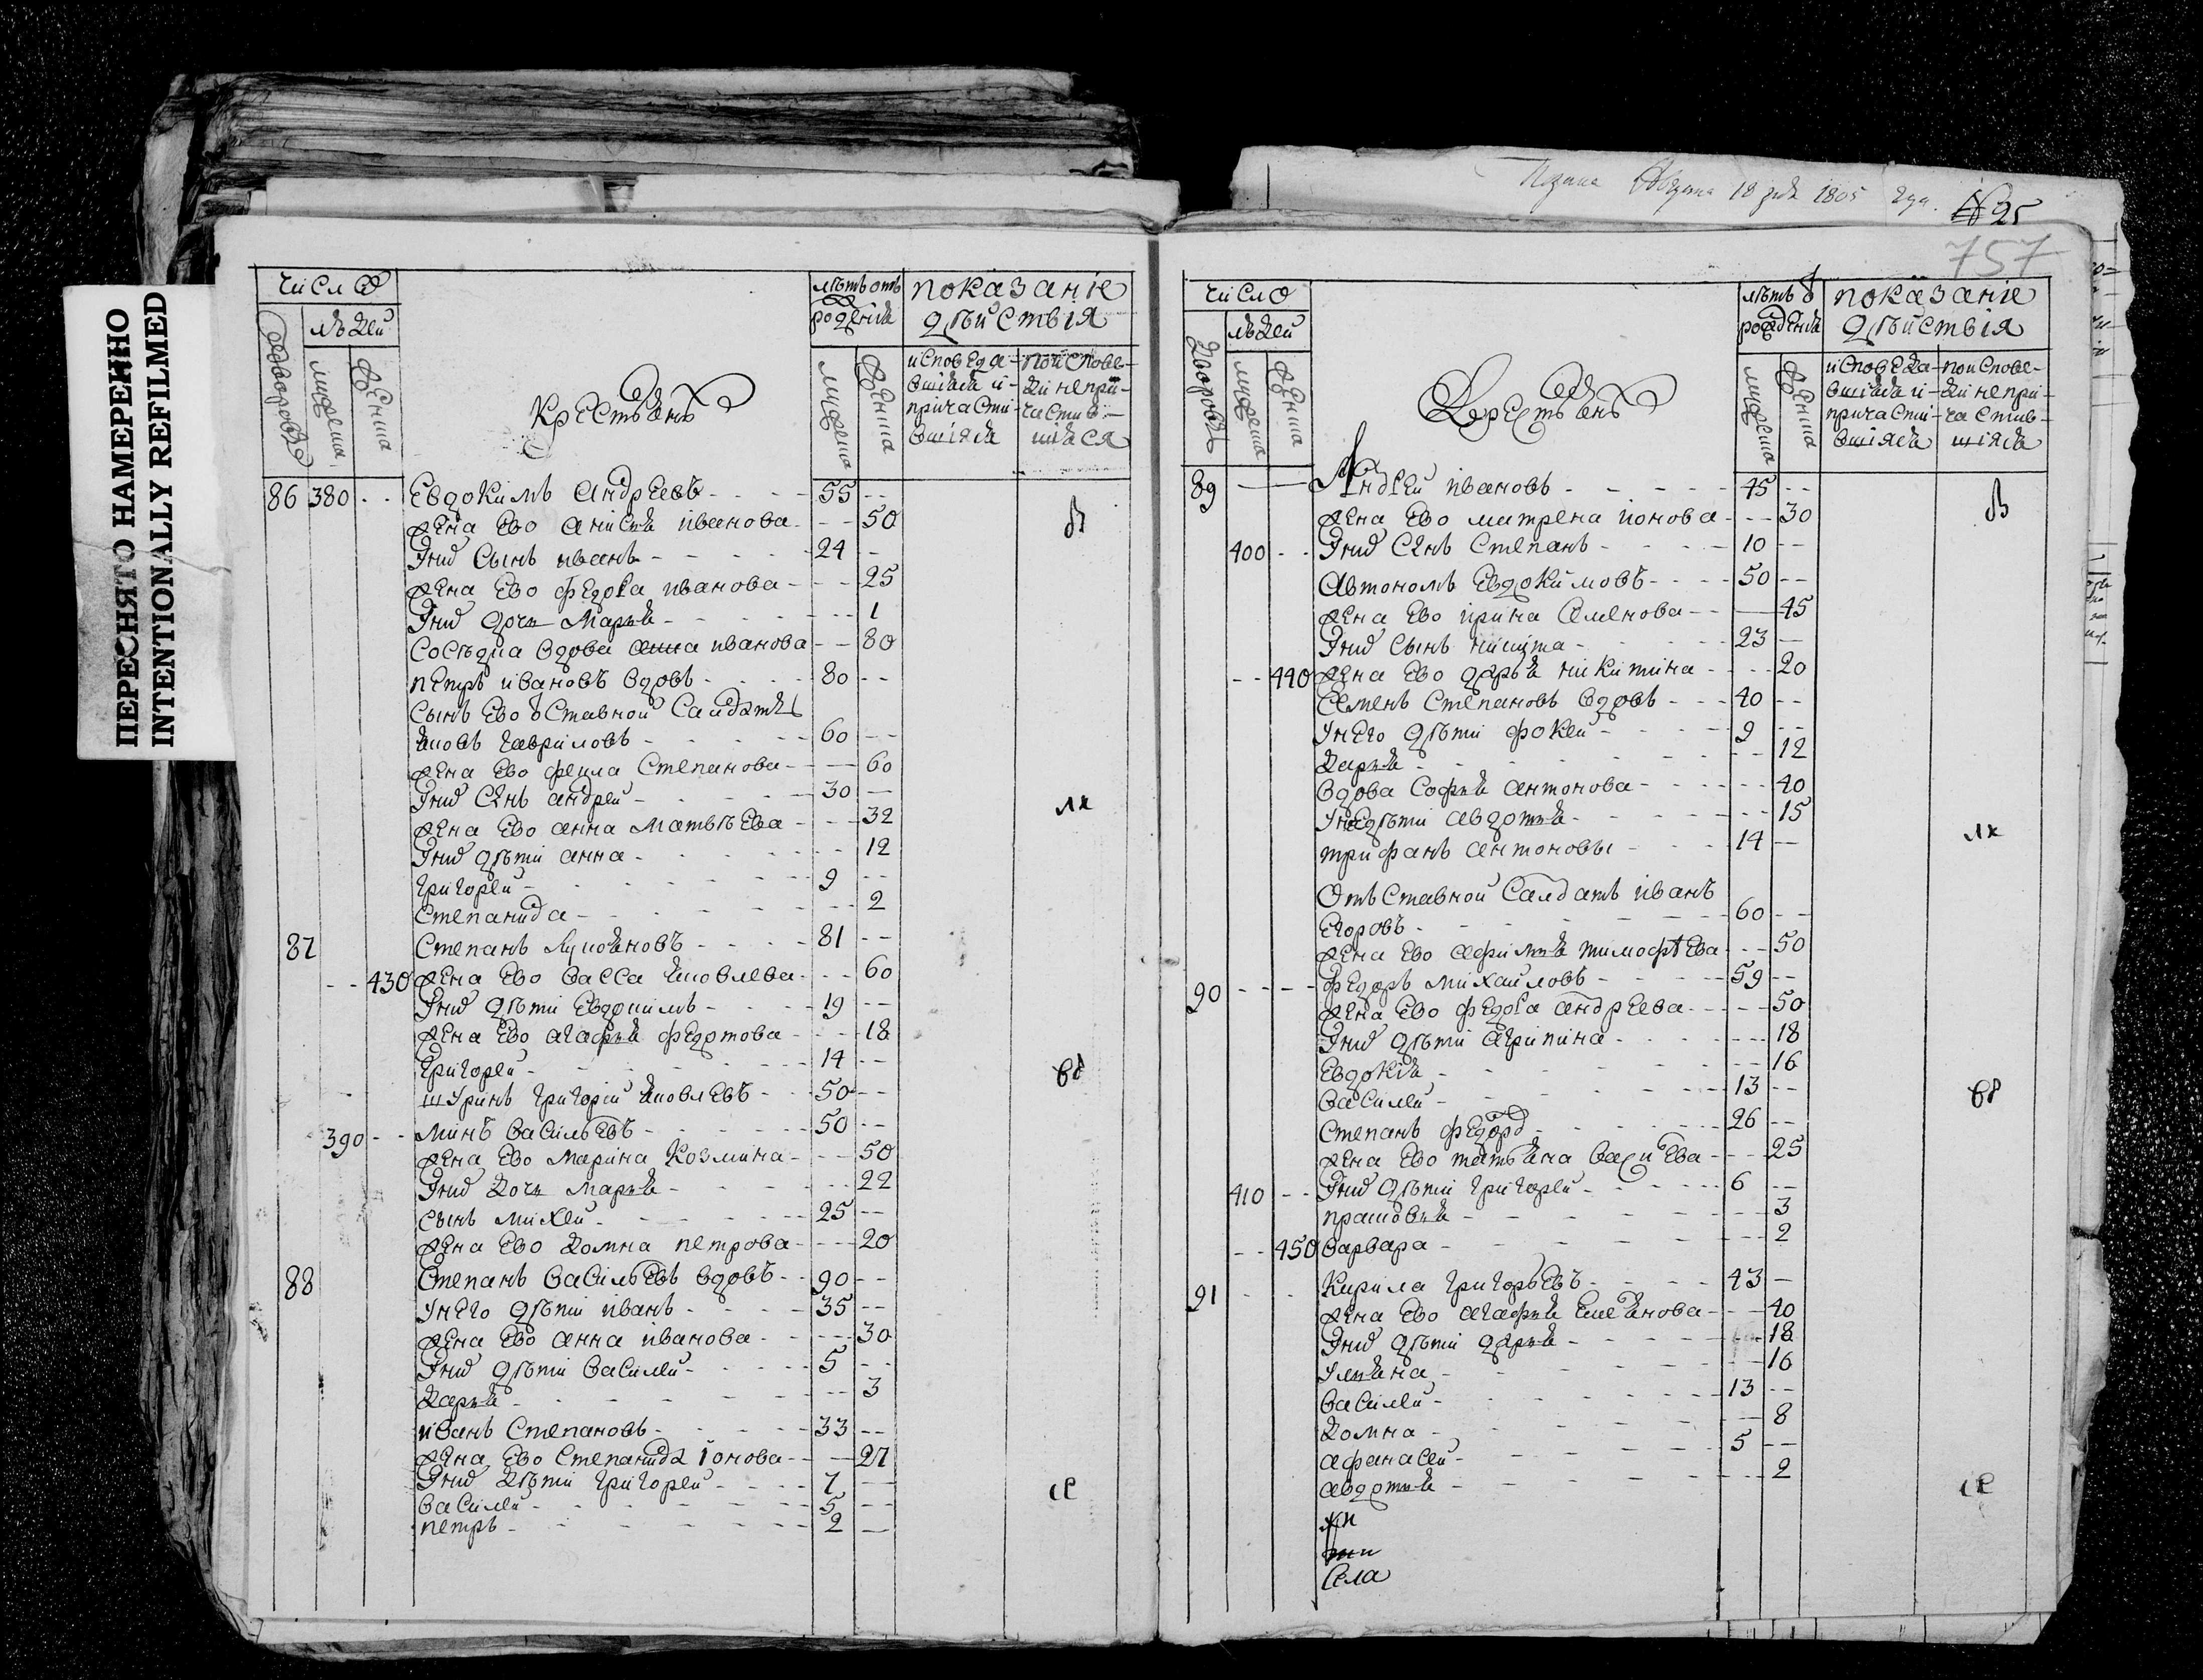 ПЕРЕСНЯТО НАМЕРЕННО
INTENTIONALLY REFILMED
число
дворовъ
людей
мужеска
женска
крестьянъ
лѣтъ отъ рожденiя
мужеска
женска
показанiе
дѣйствiя
исповеда-
вшихся и
причасти-
вшихся
86 380 Евдокимъ андреевъ 55
жена ево анисья иванова 50
У них сынъ иванъ 24
жена ево федосья иванова 25
У них дочь марья 1
Соседка вдова анна иванова 80
петръ ивановъ вдовъ 80
сынъ ево отставной Салдатъ
яковъ гавриловъ 60
жена ево фекла Степанова 60
У них снъ андрей 30
жена ево анна матвѣева 32
У них дѣти анна 12
григорей 9
Степанида 2
87 Степанъ 81
430 жена ево васса яковлева 60
У них дѣти Евдокимъ 19
жена ево агафья федотова 18
григорей 14
шуринъ григорiй яковлевъ 50
390 минъ васильевъ 50
жена ево марина козмина 50
У них дочь марья 22
сынъ михей 25
жена ево домна петрова 20
88 Степанъ васильевъ вдовъ 90
У него дѣти иванъ 35
жена ево анна иванова 30
У них дѣти василей 5
дарья 3
иванъ Степановъ 33
жена ево Степанида iонова 27
У них дѣти григорей 7
василей 5
петръ 2
1805
№ 25
757
число
дворовъ
людей
мужеска
женска
крестьянъ
лѣтъ
рожденiя
мужеска
женска
показанiе
дѣйствiя
исповеда-
вшихся и
причасти-
вшихся
по исповe-
ди не при-
частив-
шихся
89 Андрей ивановъ 45
жена ево матрена ионова 30
400 У них снъ Степанъ 10
автономъ Евдокимовъ 50
жена ево ирина Семенова 45
У них сынъ никита 23
440 жена ево дарья никитина 20
Семенъ Степановъ вдовъ 40
У него дѣти фокей 9
дарья 12
вдова Софья антонова 40
У нее дѣти авдотья 15
трифанъ антоновы 14
отъставной Салдатъ иванъ
Егоровъ 60
жена ево афимья тимофѣева 50
90 федоръ михайловъ 59
жена ево федосья андреева 50
У них дѣти агрипина 18
Евдокiя 16
василей 13
Степанъ федоро 26
жена ево татьяна васильева 25
410 У них дѣти григорей 6
прасковья 3
450 варвара 2
91 кирила григорьевъ 43
жена ево агафья Емельянова 40
У них дѣти дарья 18
Ульяна 16
василей 13
домна 8
афанасей 5
авдотья 2
Села